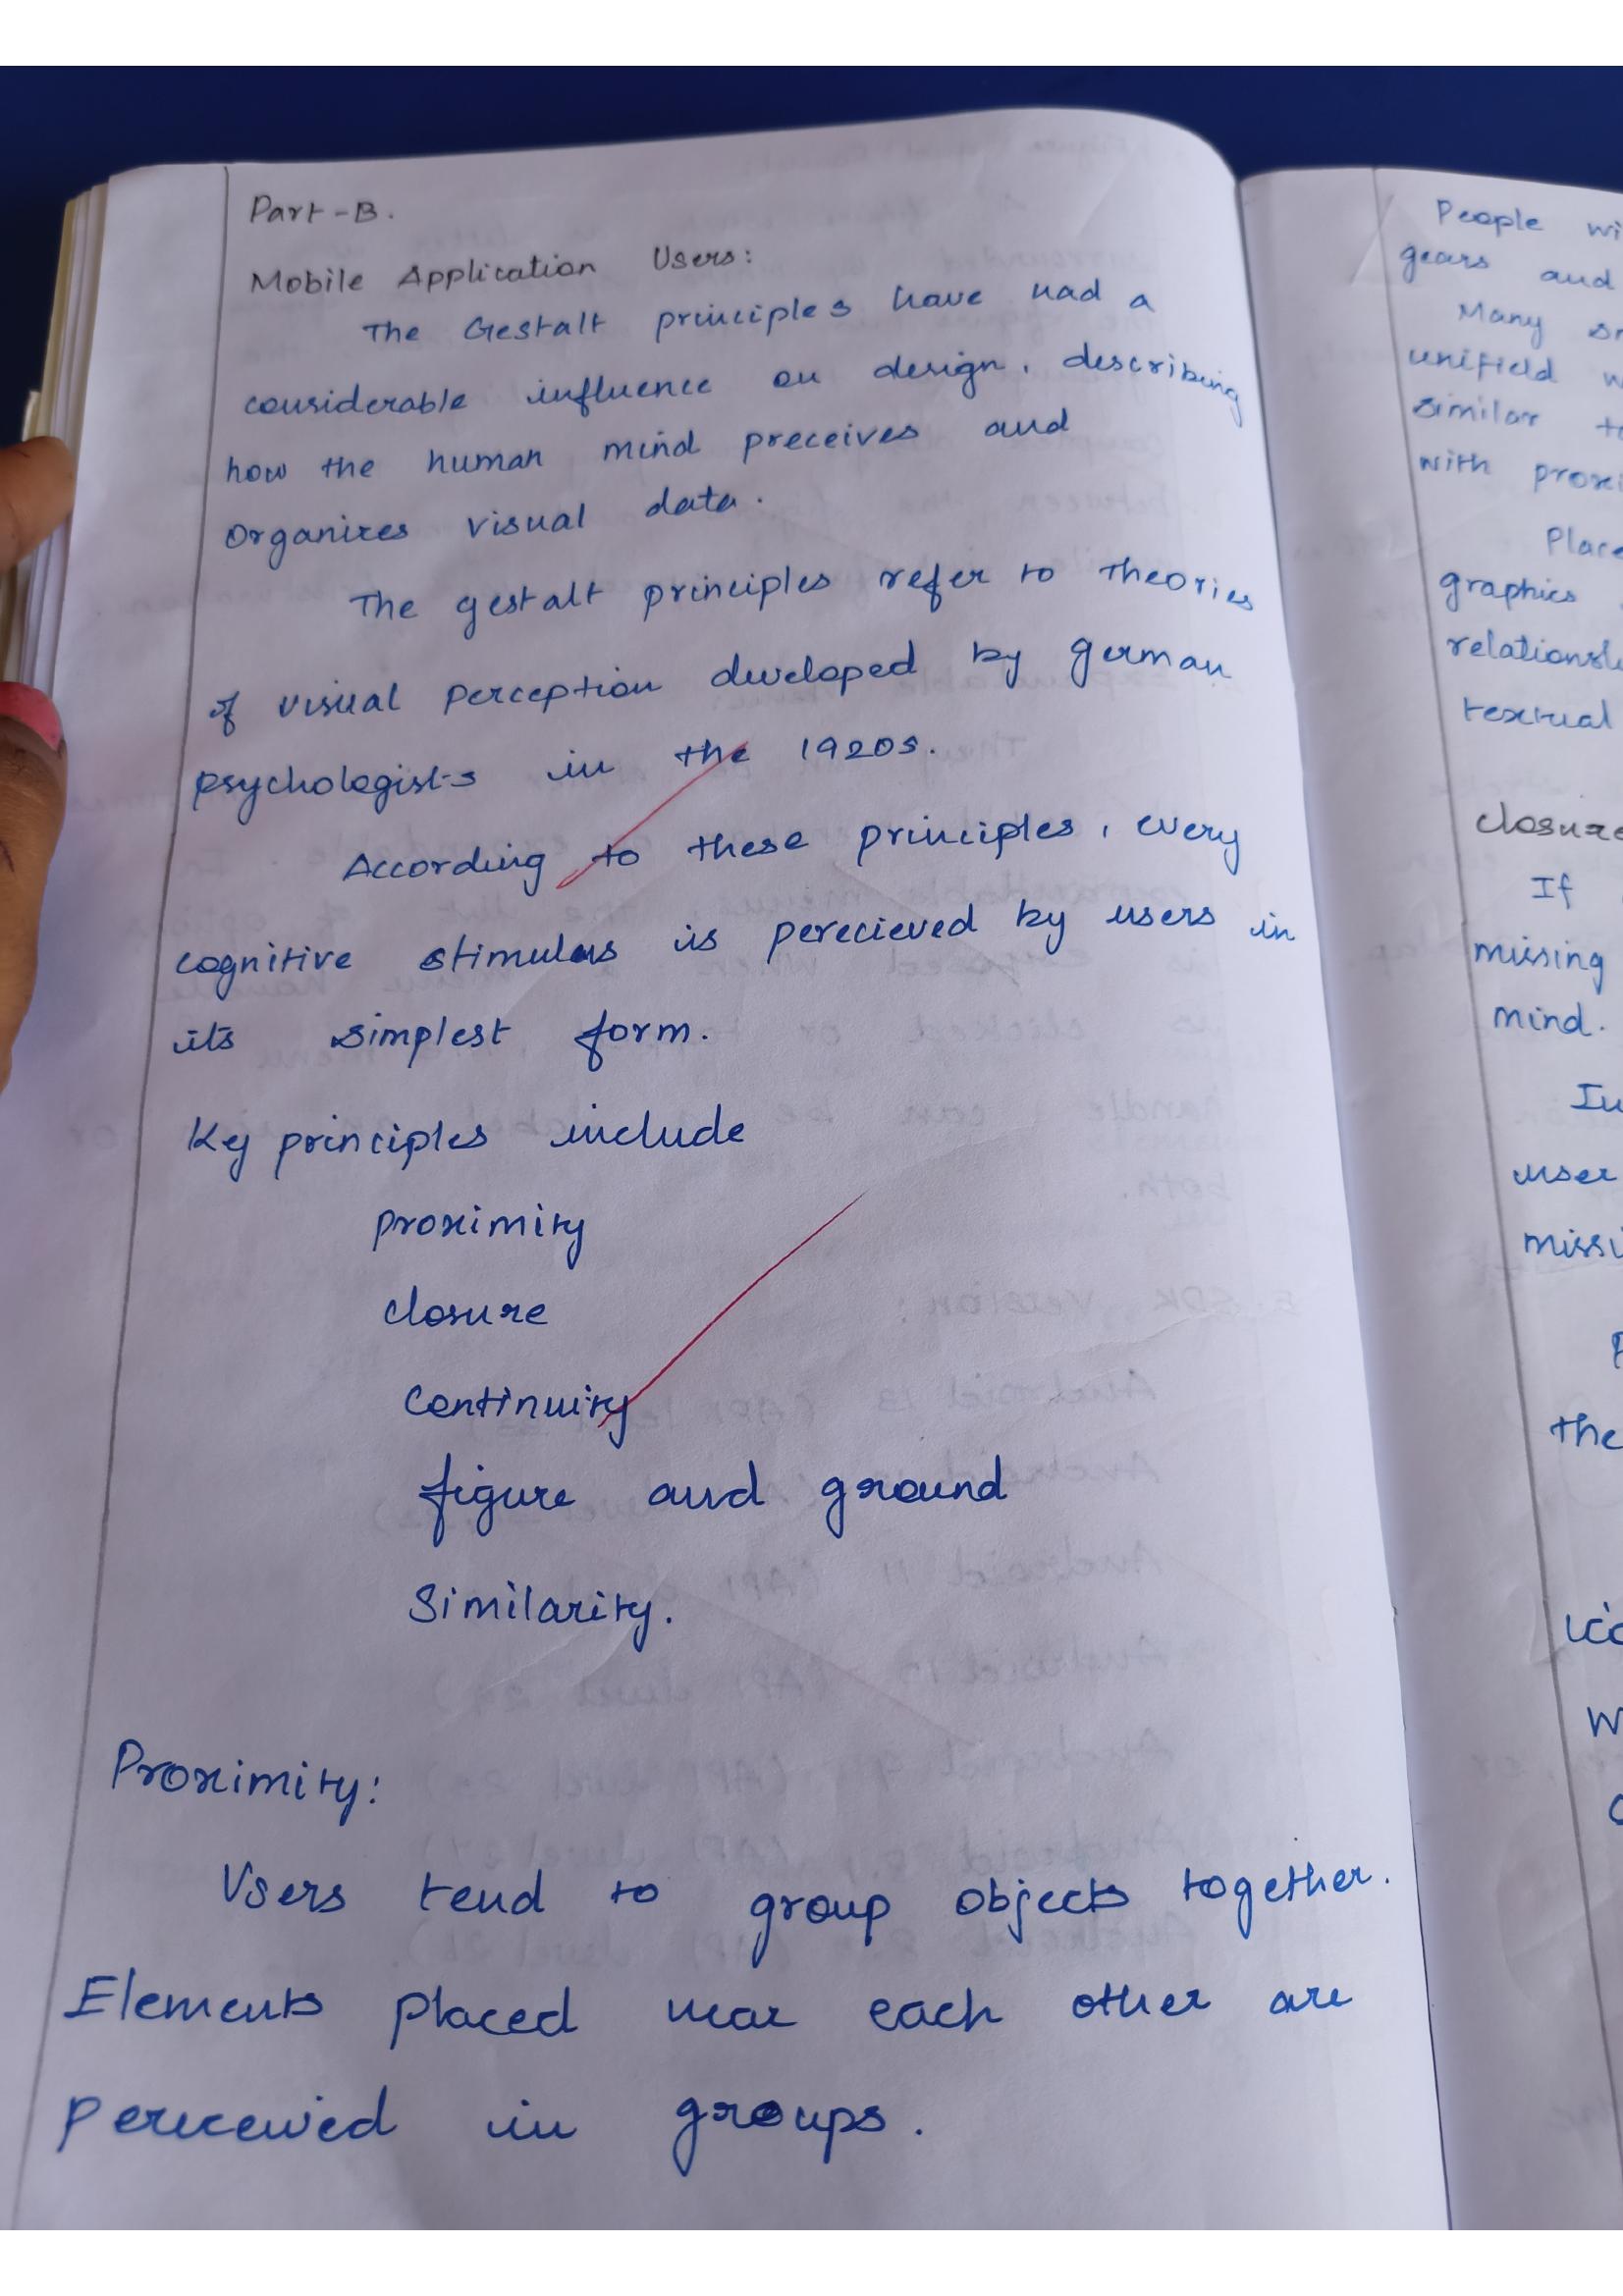 Part-B.
Mobile Application Users:
The Gestalt principles have had a
considerable influence on design, describing
how the human mind preceives and
Organizes visual data.
The gestalt principles refer to theories
of visual perception developed by german
psychologists in the 1920s.
According to these principles, every
cognitive stimulus is perecieved by users in
its simplest form.
Key principles include
proximity
closure
Continuity
figure and ground
Similarity.
Proximity:
Users tend to group objects together.
Elements placed near each other are
perecewied in groups.
People
gears and
Many
unifield
similar
with
graphics
textual
closure
If
missing
mind.
user
the